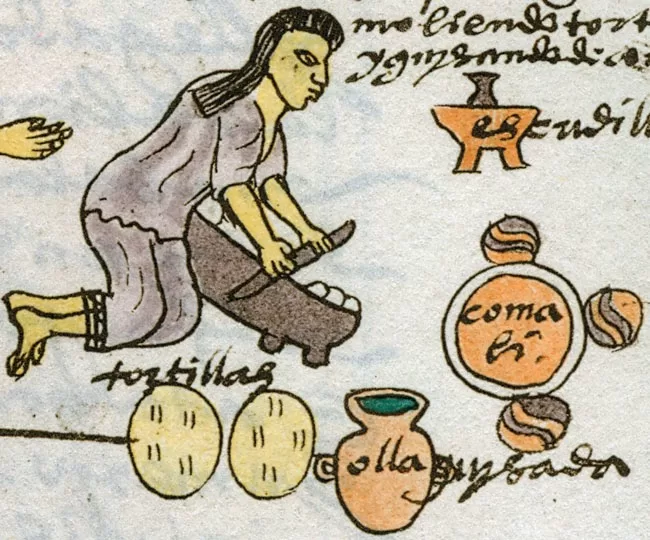 moliendo tort
y guysando de co
escudill
coma
li.
tortillas
olla guysada